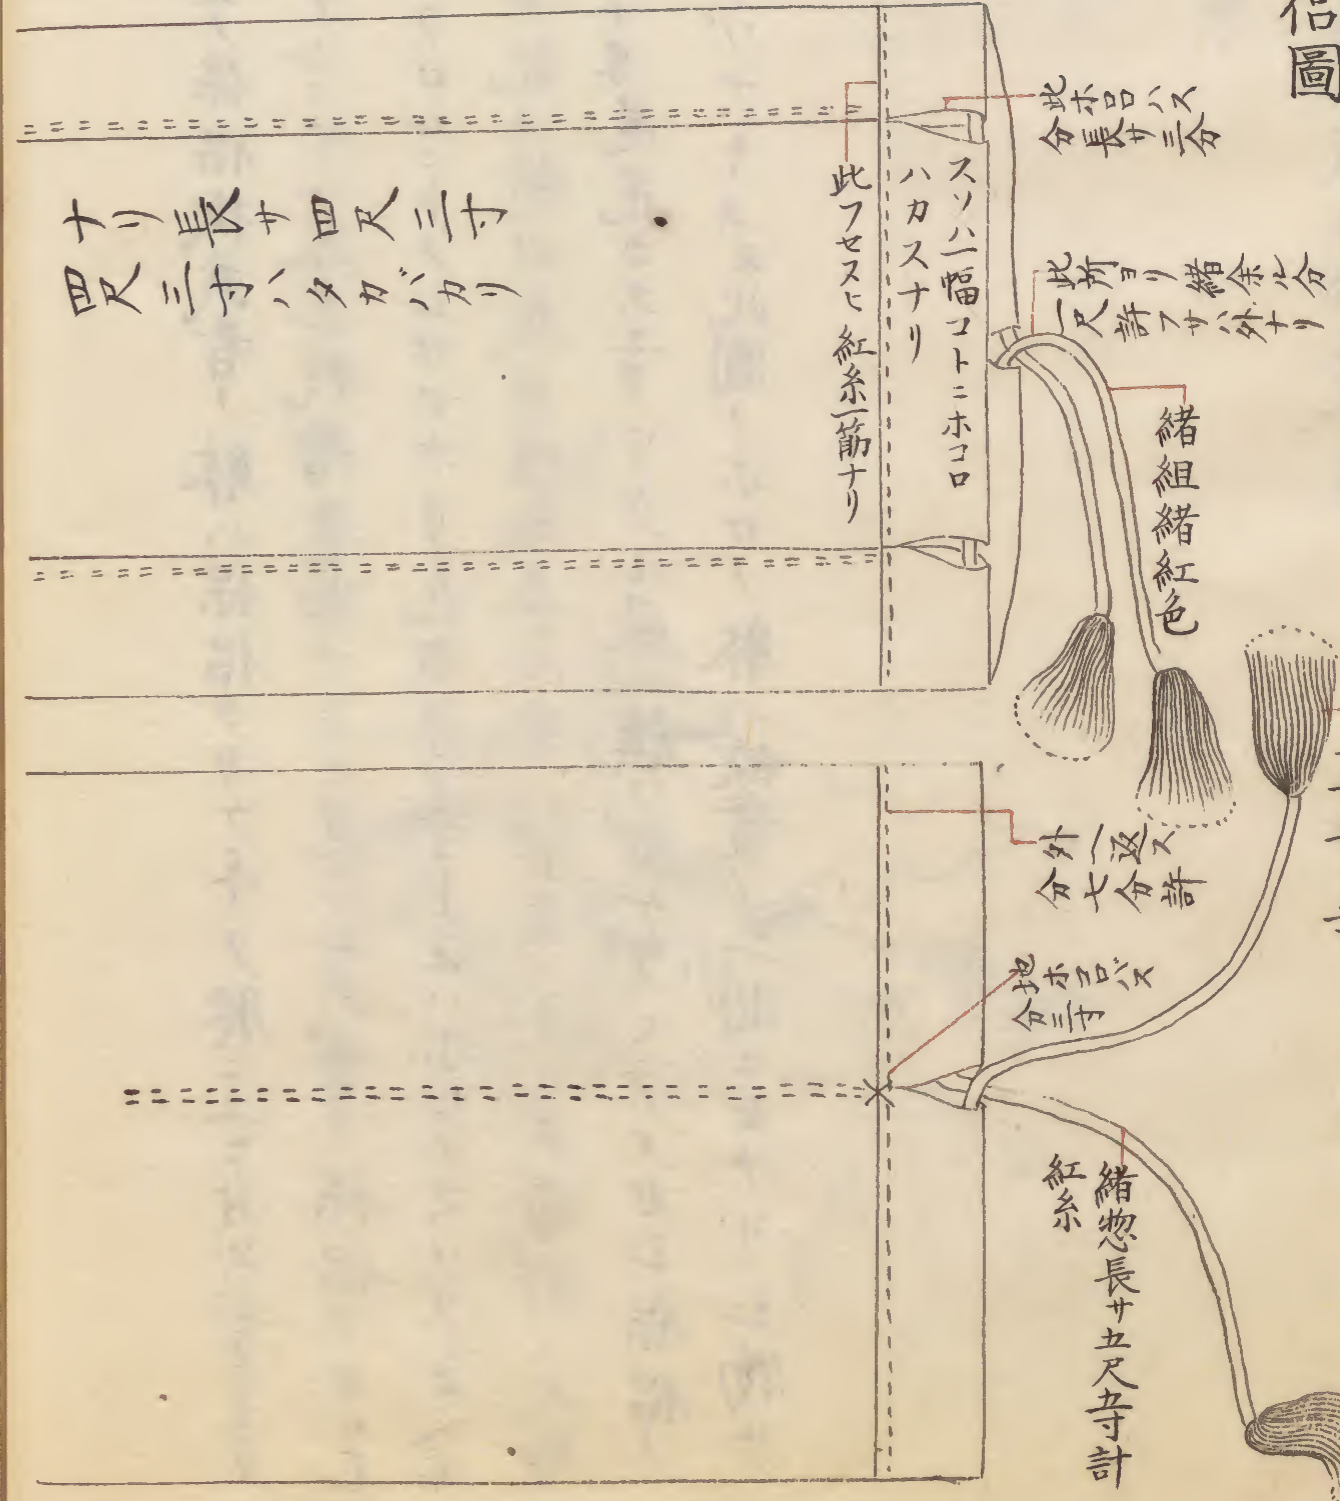 侣圖
此ホロハス
分長サ三分
此所ヨリ緒余ル分
一尺許フサハ外ナリ
緒組緒紅色
スソハ一幅コトニホコロ
ハカスナリ
此フセスヒ紅糸一筋ナリ
ナリ長サ四尺三寸
四尺三寸ハタカバカリ
外ヘ返ス
分七分許
地ホコロバス
分三寸
緒惣長サ五尺五寸計
紅糸